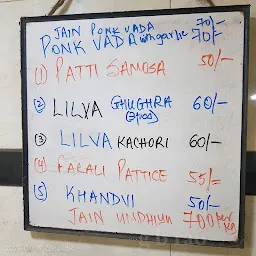 JAIN PONK VADA 70/-
PONK VADA with garlic 70/-
(1) PATTI SAMOSA 50/-
(2) LILVA GHUGHRA 60/-
(3) LILVA KACHORI 60/-
(4) FARALI PATTICE 55/-
(5) KHANDVI 50/-
JAIN UNDHIYU 700 per